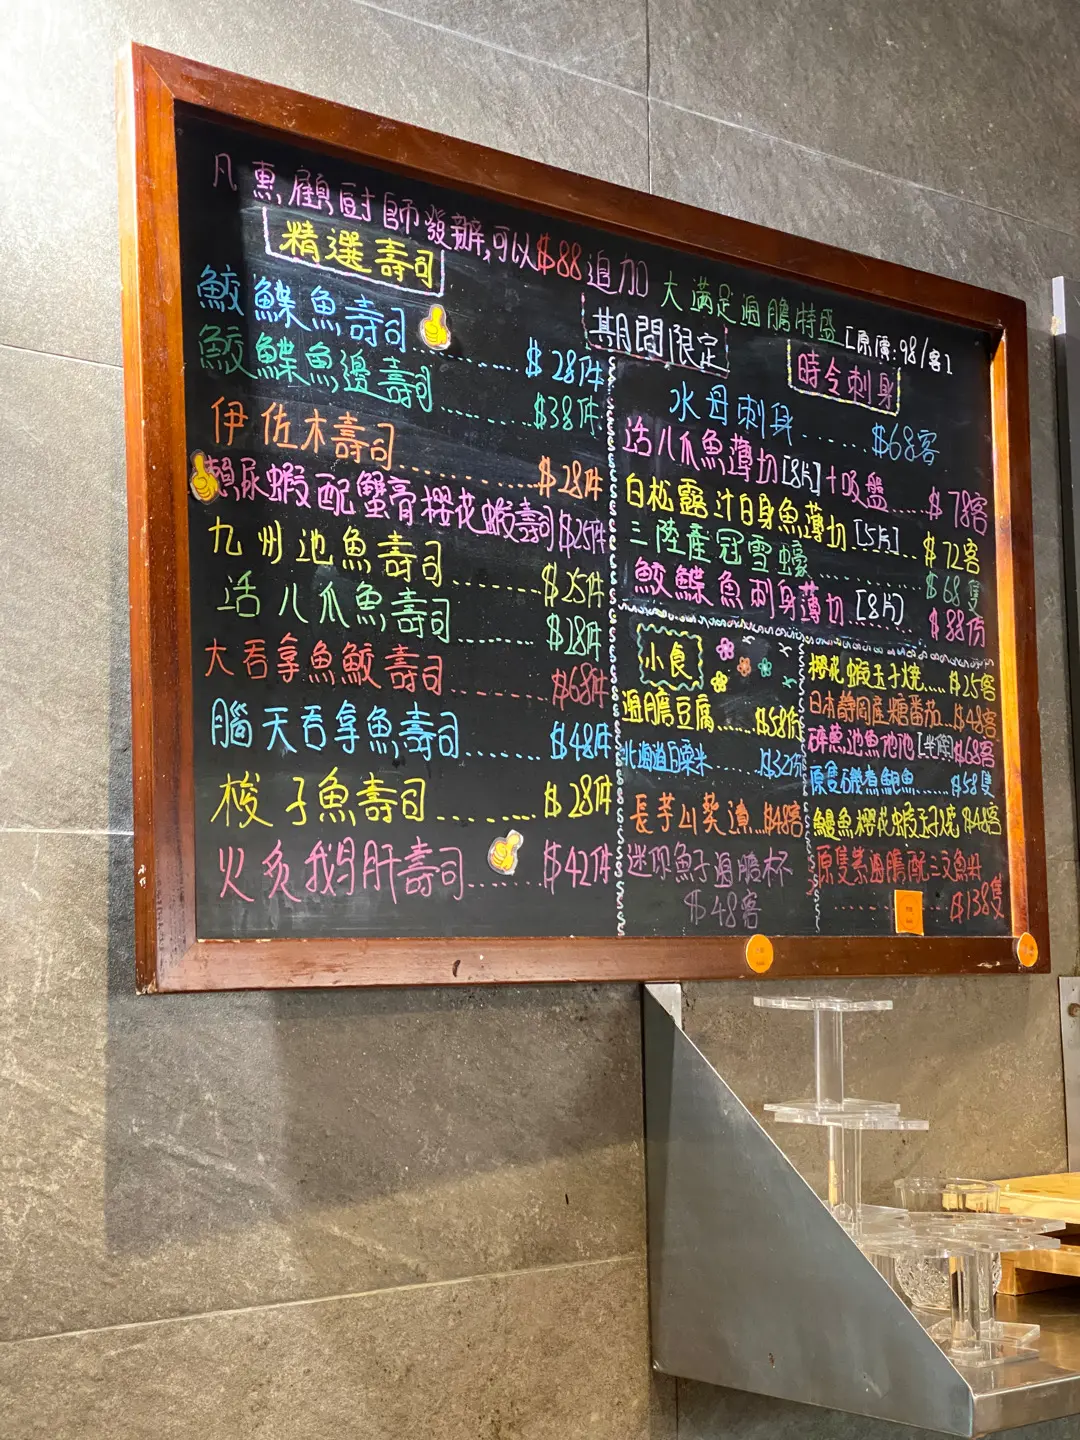 凡惠顧廚師發辦,可以$88追加 大满足海膽特盛[原價:98/客]
精選壽司
鮫鰈魚壽司......$28件
鮫鰈魚邊壽司......$38件
伊佐木壽司......$28件
賴尿蝦配蟹膏櫻花蝦壽司$25件
九州池魚壽司......$25件
活八爪魚壽司......$28件
大吞拿魚鮫壽司......$68件
腦天吞拿魚壽司......$48件
梭子魚壽司......$28件
火炙鵝肝壽司......$42件
期間限定
時令刺身
水母刺身......$68客
活八爪魚薄切[8片]+吸盤......$78客
白松露汁白身魚薄切[5片]......$72客
三陸產冠雪蠔......$68隻
鮫鰈魚刺身薄切[8片]......$88份
小食
海膽豆腐......$58份
北海道白粟米......$32份
長芋山葵漬...$48客
迷你魚子海膽杯
$48客
櫻花蝦玉子燒....$25客
日本靜岡產糖番茄...$48客
碎蔥池魚池池[半隻]$68客
原隻磯煮鮑魚......$58隻
鰻魚櫻花蝦玉子燒$48客
原隻紫海膽配三文魚籽
......$138隻